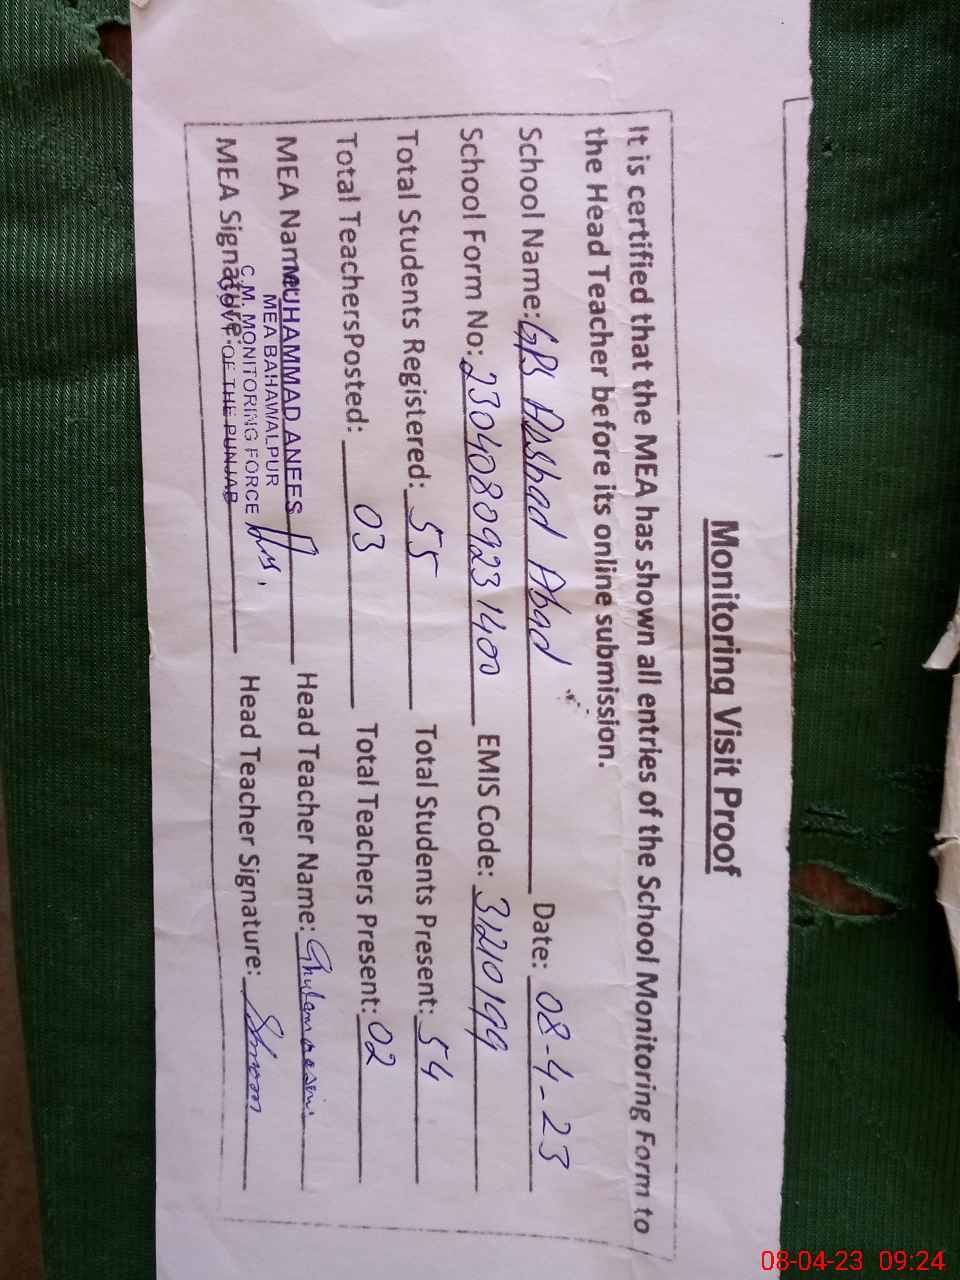 Monitoring Visit Proof
It is certified that the MEA has shown all entries of the School Monitoring Form to
the Head Teacher before its online submission.
School Name: GPS Arshad Abad Date: 08-4-23
School Form No: 23040809231400 EMIS Code: 31210199
Total Students Registered: 55 Total Students Present: 54
Total TeachersPosted: 03 Total Teachers Present: 02
MEA Name: MUHAMMAD ANEES Head Teacher Name: Ghulam
MEA BAHAWALPUR
C.M. MONITORING FORCE
GOVT OF THE PUNJAB
MEA Signature: Head Teacher Signature:
08-04-23 09:24